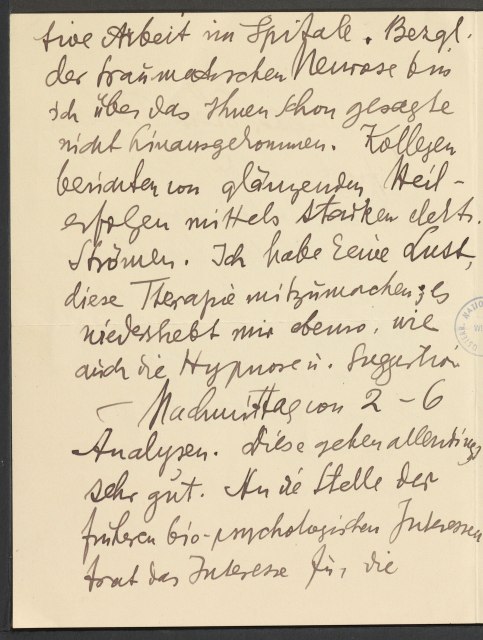 tive Arbeit im Spitale. Bezgl.
der traumatischen Neurose bin
ich über das Ihnen schon gesagte
nicht hinausgekommen. Kollegen
berichten von glänzenden Heil-
erfolgen mittels starken elektr.
Strömen. Ich habe keine Lust,
diese Therapie mitzumachen; es
mir ebenso, wie
auch die Hypnose u. Suggestion
— Nachmittag von 2 – 6
Analysen. Diese gehen allerdings
sehr gut. An die Stelle der
früheren bio-psychologischen Interessen
trat das Interesse für die